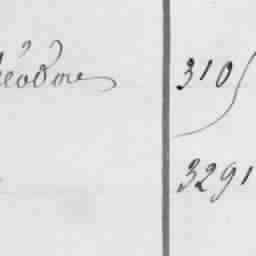 héodore 310
3291